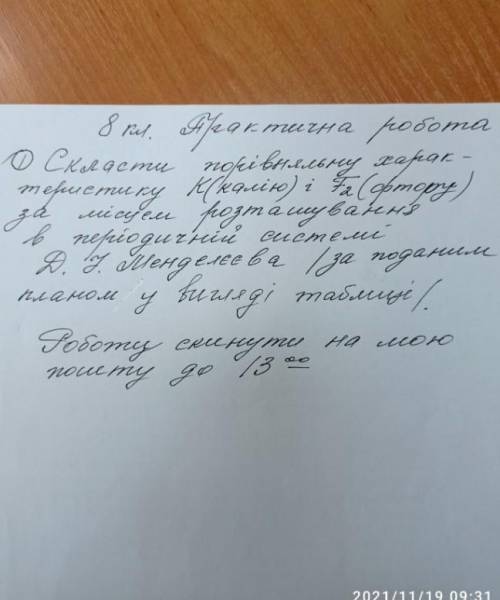 8 кл. Практична робота
① Скласти порівняльну харак-
теристику K(калію) і F₂(фтору)
за місцем розташування
в періодичній системі
Д. І. Менделєєва /за поданим
планом у вигляді таблиці/.
Роботу скинути на мою
пошту до 13⁰⁰
2021/11/19 09:31